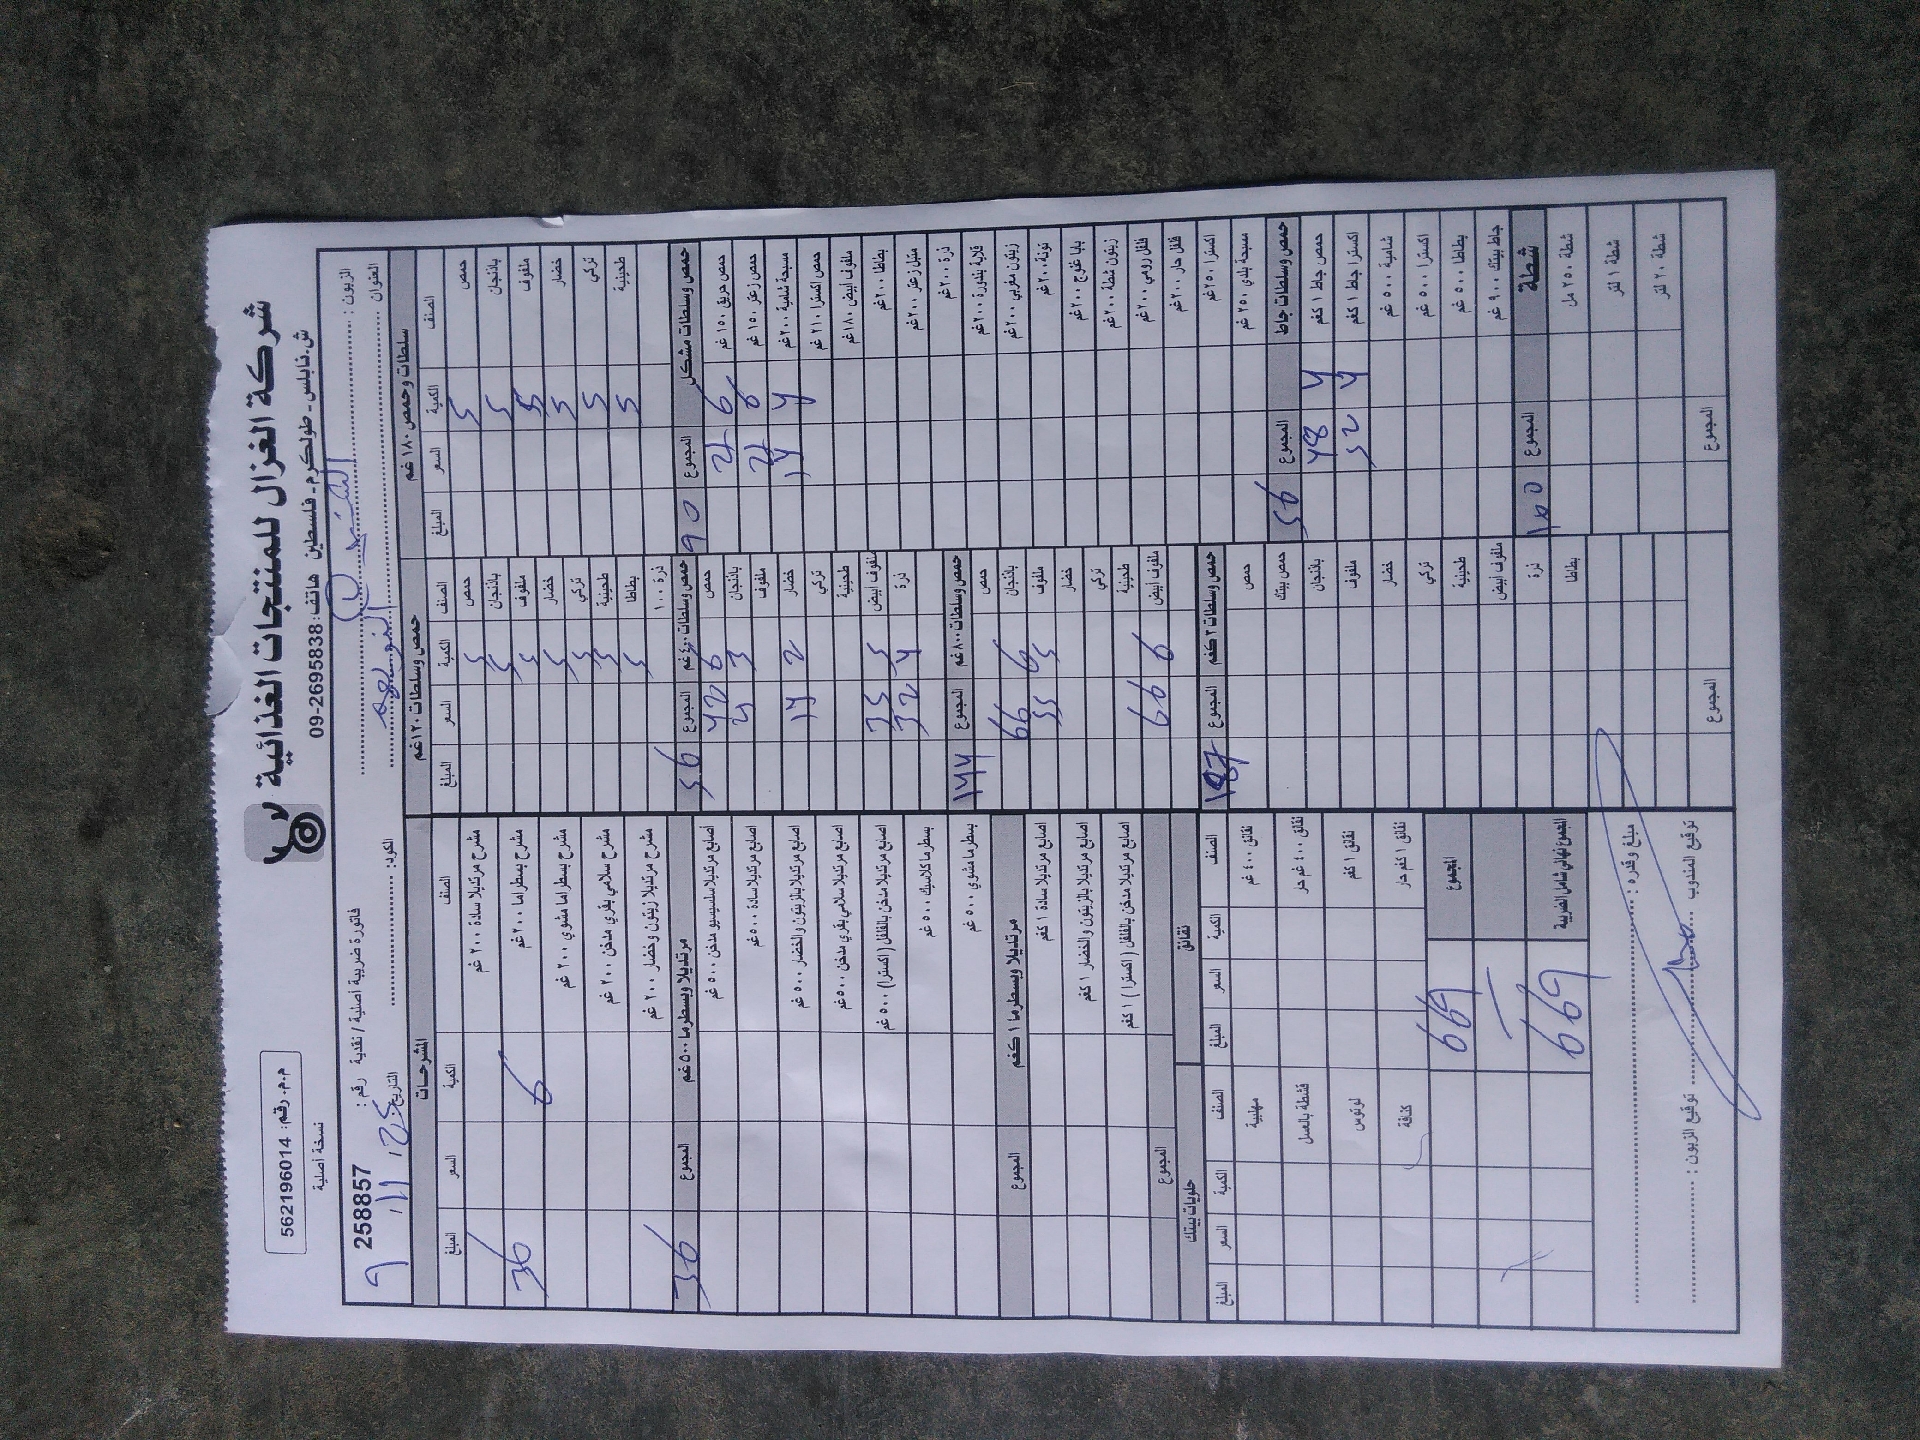 شركة الغزال للمنتجات الغذائية
ش. نابلس - طولكرم - فلسطين هاتف: 09-2695838
م.م. رقم: 562196014
نسخة أصلية
فاتورة ضريبية أصلية / نقدية رقم: 258857
الزبون:
العنوان
الكود:
التاريخ:
سلطات وحمص ١٨٠ غم
الصنف الكمية السعر المبلغ
حمص 5
باذنجان 5
ملفوف 5
خضار 5
تركي 5
طحينية 5
حمص وسلطات مشكل المجموع 90
حمص حريق ١٥٠ غم 6
حمص زعتر ١٥٠ غم 6
مسبحة شامية ٢٠٠ غم 4
حمص اكسترا ٢١٠ غم
ملفوف ابيض ١٨٠ غم
بطاطا ٢٠٠ غم
متبل زعتر ٢٠٠ غم
ذرة ٢٠٠ غم
قلاية بندورة ٢٠٠ غم
زيتون مغربي ٢٠٠ غم
تونة ٢٠٠ غم
بابا غنوج ٢٠٠ غم
زيتون شطة ٢٠٠ غم
فلفل رومي ٢٠٠ غم
فلفل حار ٢٠٠ غم
اكسترا ٢٥٠ غم
مسبحة بلدي ٢٥٠ غم
حمص وسلطات جاط المجموع 56
حمص جاط ١ كغم 4 48
اكسترا جاط ١ كغم 4 52
شامية ٥٠٠ غم
اكسترا ٥٠٠ غم
بطاطا ٥٠٠ غم
جاط بيتك ٩٠٠ غم
شطة المجموع 100
شطة ٢٥٠ مل
شطة ١ لتر
شطة ٢٠ لتر
المجموع
حمص وسلطات ١٢٠ غم
الصنف الكمية السعر المبلغ
حمص 5
باذنجان 5
ملفوف 5
خضار 5
تركي 5
طحينية 5
بطاطا
ذرة ١٠٠
حمص وسلطات ٤٠٠ غم المجموع 56
حمص 6 42
باذنجان 3
ملفوف
خضار 2 14
تركي
طحينية
ملفوف ابيض 5 35
ذرة 4 32
حمص وسلطات ٨٠٠ غم المجموع 144
حمص
باذنجان 6 66
ملفوف 5 55
خضار
تركي
طحينية
ملفوف ابيض 6 66
حمص وسلطات ٢ كغم المجموع 187
حمص
حمص بيتك
باذنجان
ملفوف
خضار
تركي
طحينية
ملفوف ابيض
ذرة
بطاطا
المجموع
المشرحات
الصنف الكمية السعر المبلغ
مشرح مرتديلا سادة ٢٠٠ غم
مشرح بسطراما ٢٠٠ غم 6 36
مشرح بسطراما مشوي ٢٠٠ غم
مشرح سلامي بقري مدخن ٢٠٠ غم
مشرح مرتديلا زيتون وخضار ٢٠٠ غم
مرتديلا وبسطرما ٥٠٠ غم المجموع 36
اصابع مرتديلا سلسيسيو مدخن ٥٠٠ غم
اصابع مرتديلا سادة ٥٠٠ غم
اصابع مرتديلا بالزيتون والخضار ٥٠٠ غم
اصابع مرتديلا سلامي بقري مدخن ٥٠٠ غم
اصابع مرتديلا مدخن بالفلفل (اكسترا) ٥٠٠ غم
بسطرما كلاسيك ٥٠٠ غم
بسطرما مشوي ٥٠٠ غم
مرتديلا وبسطرما ١ كغم المجموع
اصابع مرتديلا سادة ١ كغم
اصابع مرتديلا بالزيتون والخضار ١ كغم
اصابع مرتديلا مدخن بالفلفل (اكسترا) ١ كغم
المجموع
نقانق
الصنف الكمية السعر المبلغ
نقانق ٤٠٠ غم
نقانق ٤٠٠ غم حار
نقانق ١ كغم
نقانق ١ كغم حار
حلويات بيتك
الصنف الكمية السعر المبلغ
مهلبية
قشطة بالعسل
لوتوس
كنافة
المجموع 669
المجموع نهائي شامل الضريبة 669
مبلغ وقدره:
توقيع المندوب توقيع الزبون: